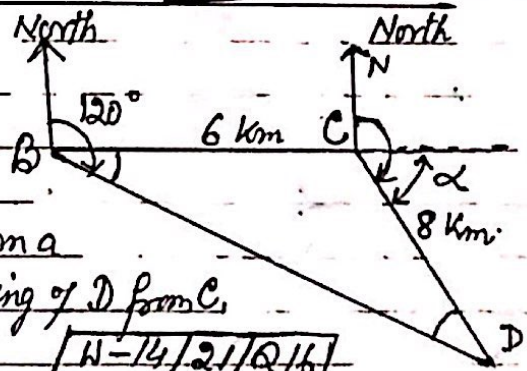 North North
N
120°
6 Km C
B
α
8 Km.
m a
ing of D from C,
D
W-14/21/Q16